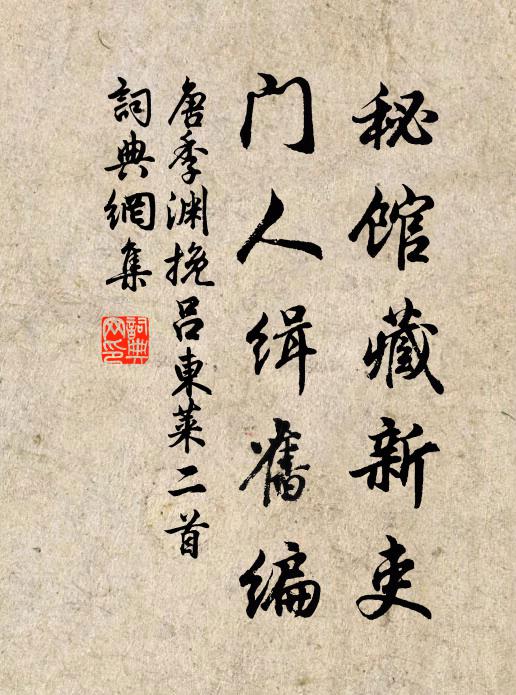 秘馆藏新吏
门人缉舊编
唐季渊挽吕東莱二首
詞典網集
詞典
网印